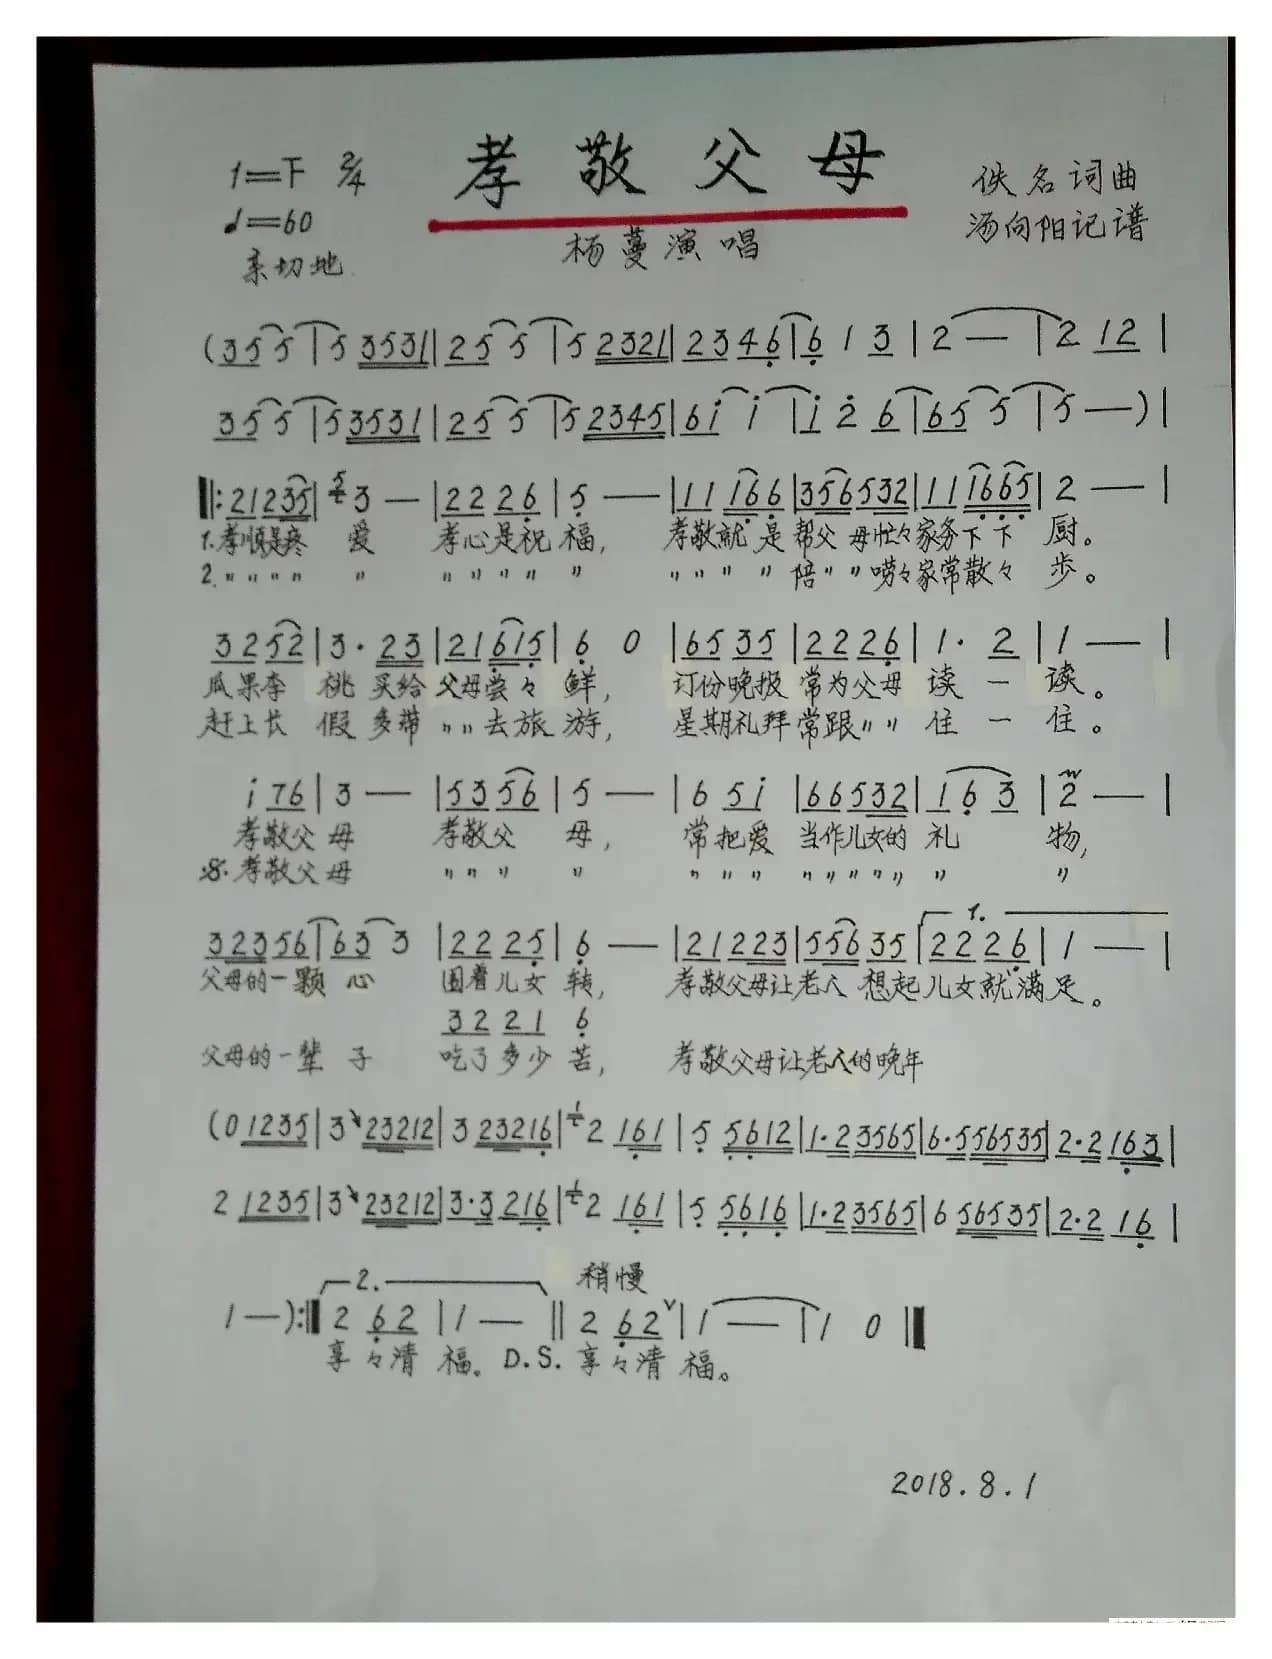 孝敬父母
1=下 2/4
♩=60
亲切地
杨蔓演唱
佚名词曲
汤向阳记谱
(355|53531|255|52321|2346|613|2—|212|
355|53531|255|52345|61i|i26|655|5—)|
‖:21235|53—|2226|5—|11166|356532|111665|2—|
1.孝顺是疼 爱 孝心是祝 福, 孝敬就 是 帮父 母忙々家务下下 厨。
2.〃〃〃〃 〃 〃〃〃〃 〃 〃〃〃 〃 陪〃〃唠々家常散々 步。
3252|3·23|21615|60|6535|2226|1·2|1—|
瓜果李 桃 买给 父母尝々 鲜, 订份晚报 常为父母 读 一 读。
赶上长 假 多带 〃〃去旅 游, 星期礼拜 常跟〃〃 住 一 住。
i76|3—|5356|5—|65i|66532|163|2—|
孝敬父 母 孝敬父 母, 常把爱 当作儿女的 礼 物,
𝄋.孝敬父 母 〃〃〃 〃 〃〃〃 〃〃〃〃〃 〃 〃
1.
32356|633|2225|6—|21223|55635|2226|1—|
父母的一颗 心 围着儿女 转, 孝敬父母让老人 想起儿女就满足。
3221 6
父母的一辈 子 吃了多少 苦, 孝敬父母让老人的晚年
(01235|323212|323216|12161|55612|1·23565|6·556535|2·2163|
21235|323212|3·3216|12161|55616|1·23565|656535|2·216|
2. 稍慢
1—):‖262|1—‖262ˇ|1—|10‖
享々清 福。D.S.享々清 福。
2018.8.1